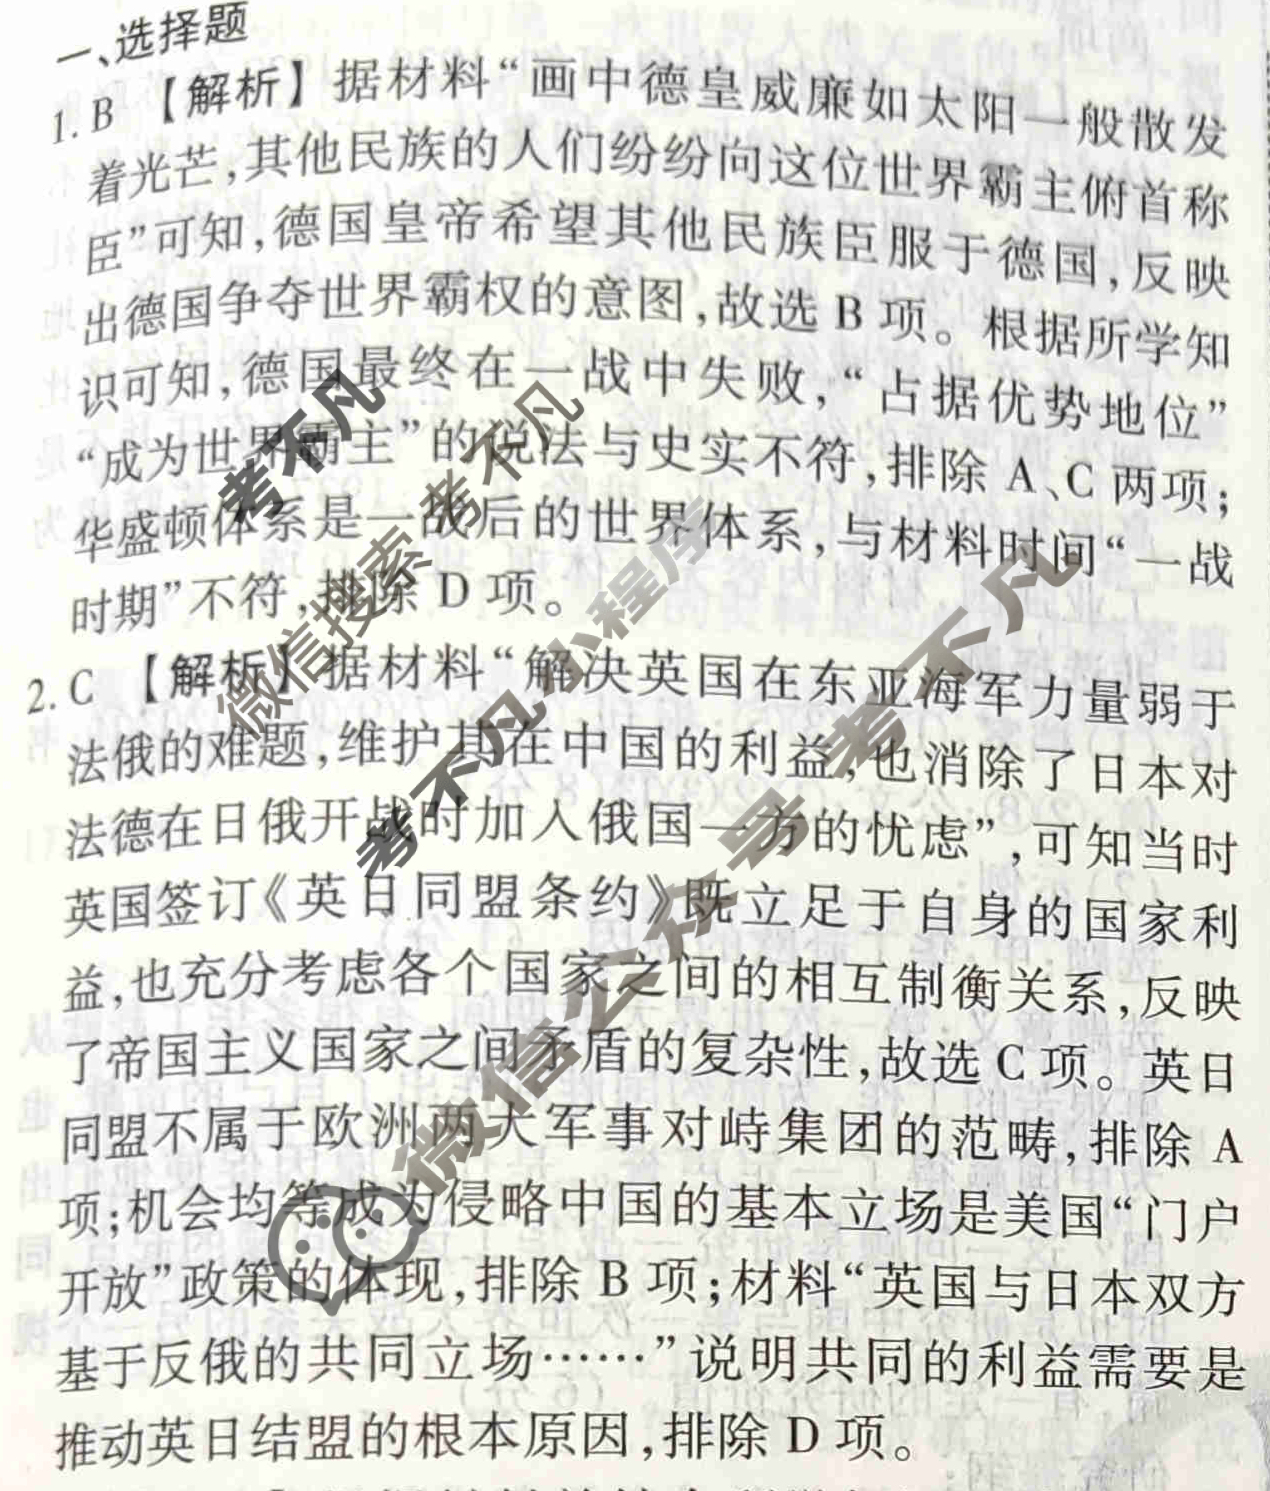 一、选择题
1. B 【解析】据材料“画中德皇威廉如太阳一般散发
着光芒,其他民族的人们纷纷向这位世界霸主俯首称
臣”可知,德国皇帝希望其他民族臣服于德国,反映
出德国争夺世界霸权的意图,故选 B 项。根据所学知
识可知,德国最终在一战中失败,“占据优势地位”
“成为世界霸主”的说法与史实不符,排除 A、C 两项;
华盛顿体系是一战后的世界体系,与材料时间“一战
时期”不符,排除 D 项。
2. C 【解析】据材料“解决英国在东亚海军力量弱于
法俄的难题,维护其在中国的利益,也消除了日本对
法德在日俄开战时加入俄国一方的忧虑”,可知当时
英国签订《英日同盟条约》既立足于自身的国家利
益,也充分考虑各个国家之间的相互制衡关系,反映
了帝国主义国家之间矛盾的复杂性,故选 C 项。英日
同盟不属于欧洲两大军事对峙集团的范畴,排除 A
项;机会均等成为侵略中国的基本立场是美国“门户
开放”政策的体现,排除 B 项;材料“英国与日本双方
基于反俄的共同立场……”说明共同的利益需要是
推动英日结盟的根本原因,排除 D 项。
考不凡
微信搜索 考不凡
考不凡小程序
微信公众号 考不凡